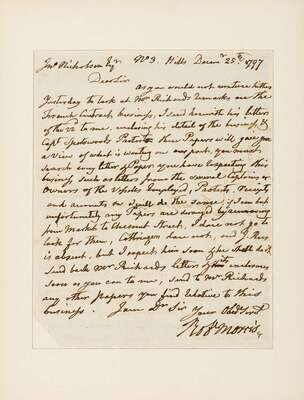 Jnº Nicholson Esqr Nº 3. Hills Decemr 25th 1797
Dear Sir
As you would not venture hither
Yesterday to look at Mr Richards remarks on the
French Contract, business, I send herewith his letters
of the 22 to me, inclosing his detail of the business, &
Capt Spotswoods Protest these Papers will give you
a view of what is wanting on our part, you must
search every letter & Paper you have respecting this
business such as letters from the several Captains or
Owners of the Vessels Employed, Protests, receipts
and accounts or I will do the same, so soon but
unfortunately my Papers are deranged by
from Market to Chesnut Street, I dare not go to
look for them, Cottringer dare not, and J Rose
is absent, but I expect him soon & he shall do it
send back Mr Richards letters & its inclosures
soon as you can to me, send to Mr Richards
any other papers you find relative to this
business. I am Dr Sir Your Obedt Servt
Robt Morris